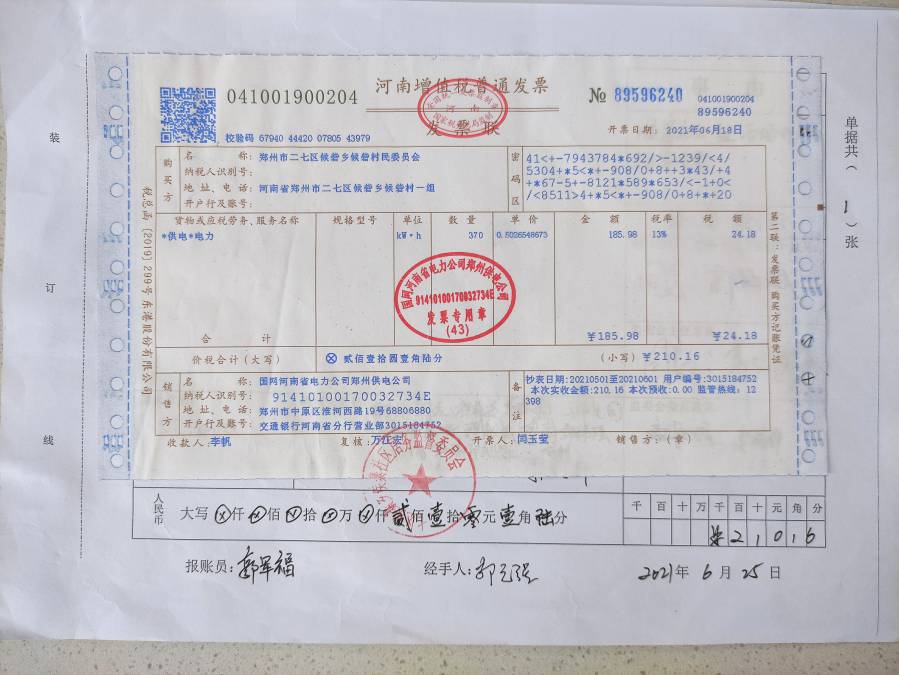 河南增值税普通发票
发票联
041001900204
№ 89596240
041001900204
89596240
校验码 67940 44420 07805 43979
开票日期: 2021年06月18日
购买方
名 称: 郑州市二七区候砦乡候砦村民委员会
纳税人识别号:
地 址、电 话: 河南省郑州市二七区候砦乡候砦村一组
开户行及账号:
密码区
41<+-7943784*692/>-1239/<4/
5304+*5<*+-908/0+8++3*43/+4
+*67-5+-8121*589*653/<-1+0<
/<8511>4+*5<*+-908/0+8+*+20
货物或应税劳务、服务名称 规格型号 单位 数 量 单 价 金 额 税率 税 额
*供电*电力 kW·h 370 0.5026548673 185.98 13% 24.18
国网河南省电力公司郑州供电公司
91410100170032734E
发票专用章
(43)
合 计 ¥185.98 ¥24.18
价税合计(大写) ⊗ 贰佰壹拾圆壹角陆分 (小写) ¥210.16
销售方
名 称: 国网河南省电力公司郑州供电公司
纳税人识别号: 91410100170032734E
地 址、电 话: 郑州市中原区淮河西路19号68806880
开户行及账号: 交通银行河南省分行营业部3015184752
备注
抄表日期:20210501至20210601 用户编号:3015184752
本次实收金额:210.16 本次预收:0.00 监管热线:12
398
收款人: 李帆 复核: 万江宏 开票人: 闫玉莹 销售方:(章)
税总函[2019]299号 东港股份有限公司
第二联:发票联 购买方记账凭证
装
订
线
单据共(1)张
人民币
大写 ⊗仟⊗佰⊗拾⊗万⊗仟贰佰壹拾零元壹角陆分
千 百 十 万 千 百 十 元 角 分
2 1 0 1 6
报账员: 郭军福 经手人: 郭元强 2021年 6月 25日